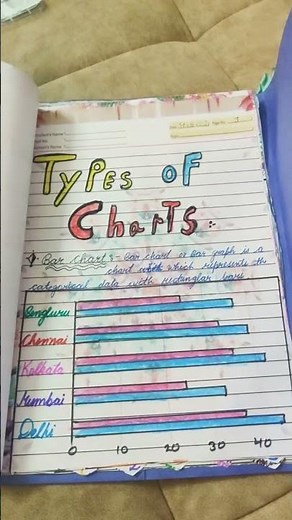 Types of
Charts :-
Bar Chart :- Bar chart or Bar graph is a
chart which represents the
categorical data with rectangular bars
Bengluru
Chennai
Kolkata
Mumbai
Delhi
0 10 20 30 40